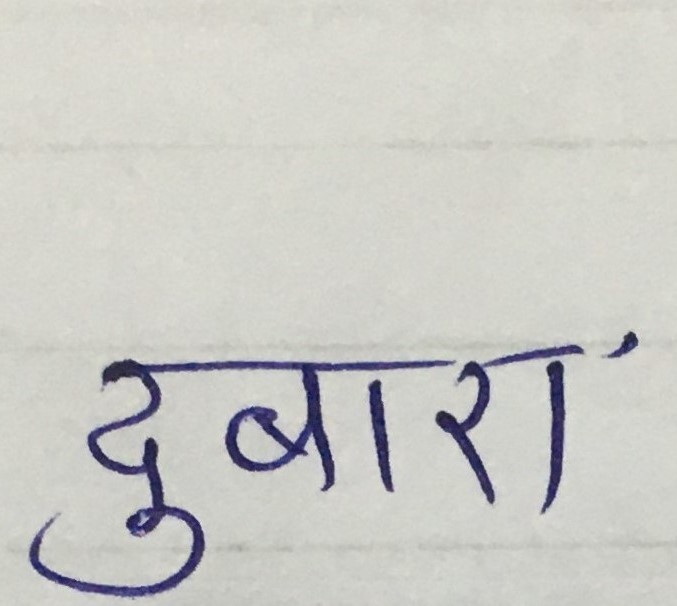 दुबारां